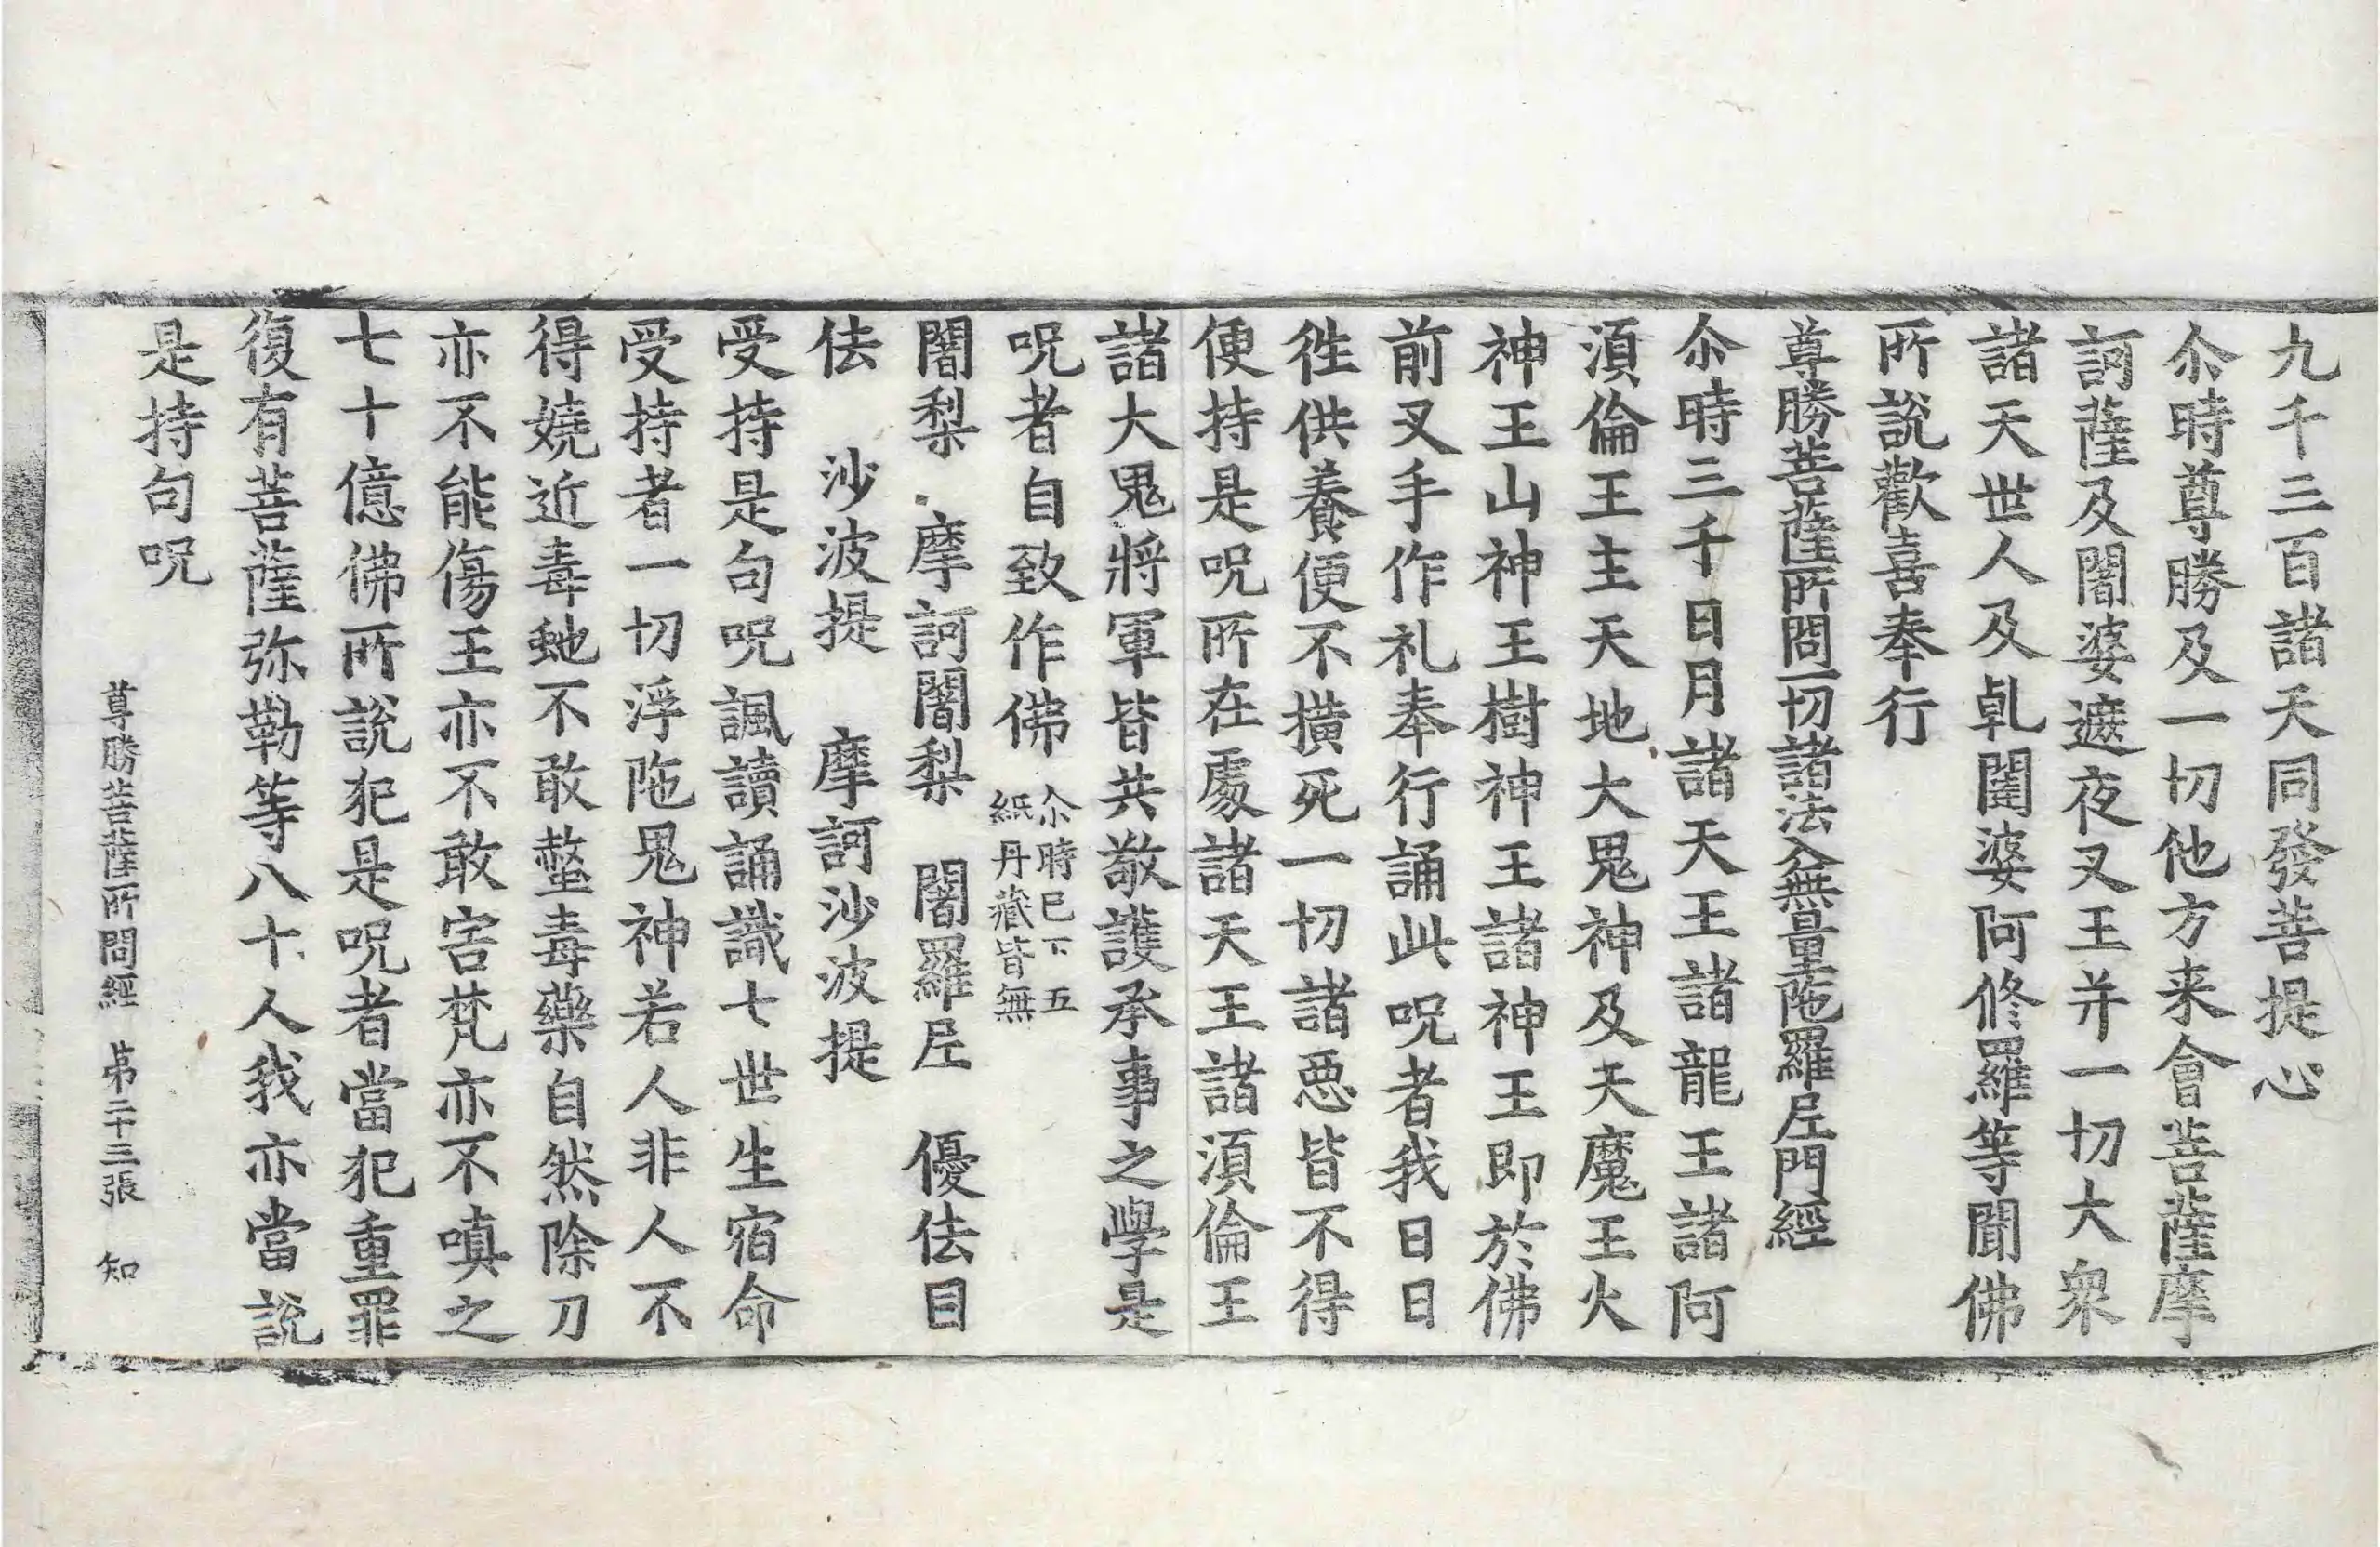 九千三百諸天同發菩提心
尒時尊勝及一切他方来會菩薩摩
訶薩及闍婆遮夜叉王并一切大衆
諸天世人及乹闥婆阿修羅等聞佛
所說歡喜奉行
尊勝菩薩所問一切諸法入無量陁羅尼門經
尒時三千日月諸天王諸龍王諸阿
湏倫王主天地大鬼神及天魔王火
神王山神王樹神王諸神王即於佛
前叉手作礼奉行誦此呪者我日日
徃供養便不撗死一切諸惡皆不得
便持是呪所在處諸天王諸湏倫王
諸大鬼將軍皆共敬護承事之學是
呪者自致作佛 尒時已下五
紙丹藏皆無
闍梨 摩訶闍梨 闍羅尼 優佉目
佉 沙波提 摩訶沙波提
受持是句呪諷讀誦識七世生宿命
受持者一切浮陁鬼神若人非人不
得嬈近毒虵不敢螫毒藥自然除刀
亦不能傷王亦不敢害梵亦不嗔之
七十億佛所說犯是呪者當犯重罪
復有菩薩弥勒等八十人我亦當說
是持句呪
尊勝菩薩所問經 苐二十三張 知